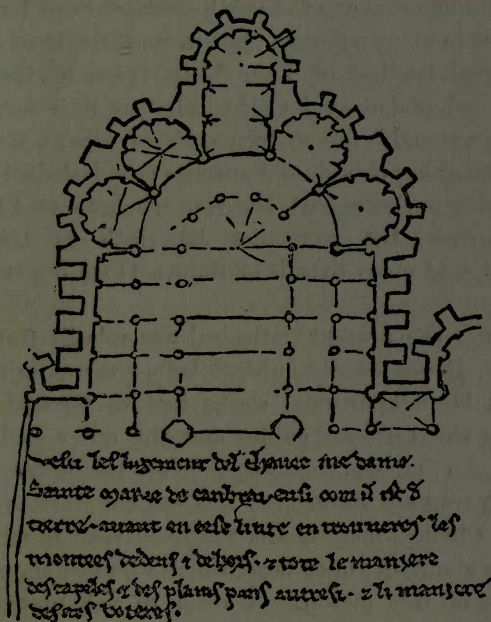 vesci lesligement del chavec me dame.
Sainte marie de canbrai ensi com il ist de
tierre. avant en cest livre en trouveres les
montees dedens ⁊ dehors. ⁊ tote le maniere
des capeles ⁊ des plains pans autresi. ⁊ li maniere
des ars boteres.